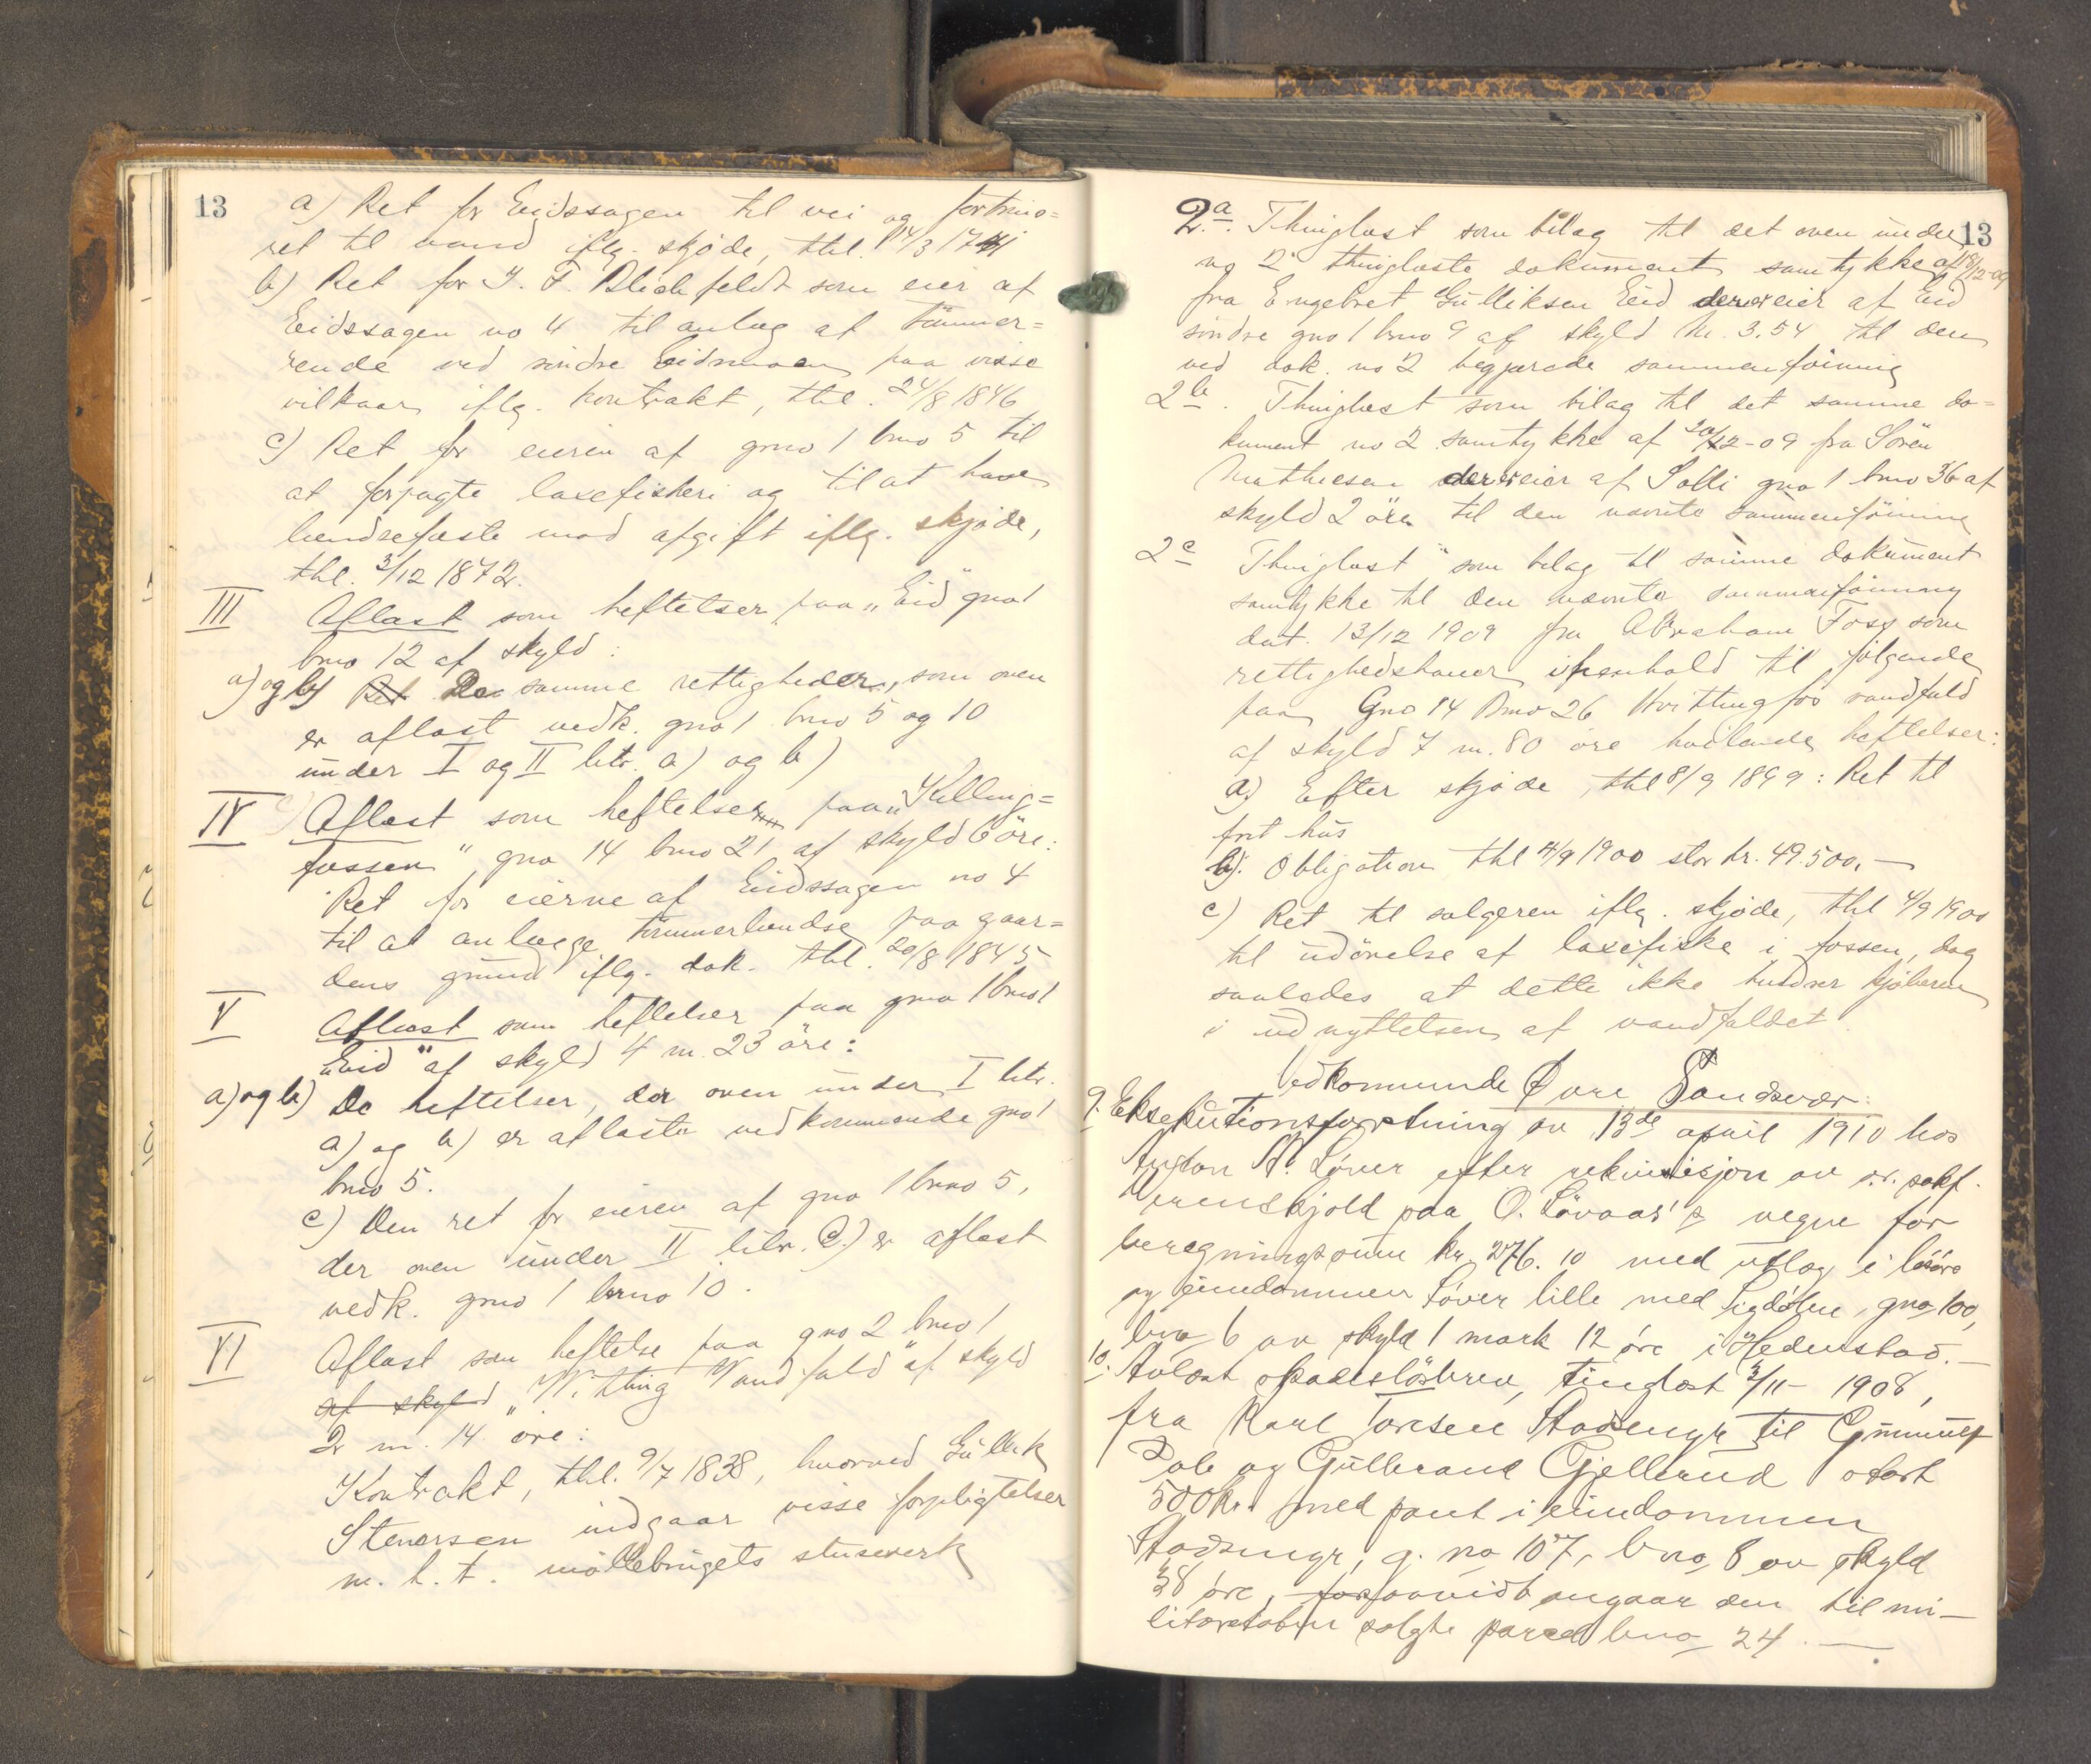 13
a) Ret for Eidssagen til vei og fortrins=
ret til vand iflg. skjøde, thl. 14/3 1741
b) Ret for J. F. Blichfeldt som eier af
Eidssagen no 4 til anlæg af tömmer=
rende ved söndre Eidsmoen paa visse
vilkaar iflg. kontrakt, thl. 24/8 1846
c) Ret for eieren af gno 1 bno 5 til
at forpagte laxefiskeri og til at have
lændsefæste mod afgift iflg. skjøde,
thl. 3/12 1872.
III Aflæst som heftelser paa „Eid" gno 1
bno 12 af skyld :
a) og b) Ret De samme rettigheder, som oven
er aflæst vedk. gno 1 bno 5 og 10
under I og II litr. a) og b)
IV Aflæst som heftelser paa „Kelling=
fossen" gno 14 bno 21 af skyld 6 öre:
Ret for eierne af Eidssagen no 4
til at anlægge tömmerlændse paa gaar=
dens grund iflg. dok. thl. 20/8 1845
V Aflæst som heftelser paa gno 1 bno 1
„Eid" af skyld 4 m. 23 öre:
a) og b) De heftelser, der oven under I litr.
a) og b) er aflæste vedkommende gno 1
bno 5.
c) Den ret for eieren af gno 1 bno 5,
der oven under II litr. c.) er aflæst
vedk. gno 1 bno 10.
VI Aflæst som heftelse paa gno 2 bno 1
af skyld „Vitting Vandfald" af skyld
2 m. 14 öre:
Kontrakt, thl. 9/7 1838, hvorved Gullik
Stenersen indgaar visse forpligtelser
m. h. t. möllebrugets stusverk
13
2a. Thinglæst som bilag til det oven under
no 2 thinglæste dokument samtykke af 18/12-09
fra Engebret Gulliksen Eid der er eier af Eid
söndre gno 1 bno 9 af skyld M. 3.54 til den
ved dok. no 2 begjærede sammenföining
2b. Thinglæst som bilag til det samme do=
kument no 2 samtykke af 20/12-09 fra Sören
Mathiesen der er eier af Solli gno 1 bno 36 af
skyld 2 öre til den nævnte sammenföining
2c Thinglæst som bilag til samme dokument
samtykke til den nævnte sammenföining
dat. 13/12 1909 fra Abraham Foss som
rettighedshaver i henhold til følgende
paa Gno 14 Bno 26 Hvittingfos vandfald
af skyld 7 m. 80 öre hvilende heftelser:
a) Efter skjøde, thl 8/9 1899: Ret til
frit hus
b). Obligation thl 4/9 1900 stor kr. 49.500.—
c) Ret til sælgeren iflg. skjøde, thl 4/9 1900
til udövelse af laxefiske i fossen, dog
saaledes at dette ikke hindrer kjöberen
i udnyttelsen af vandfaldet.
Vedkommende Øvre Sandsvær:
9. Eksekutionsforretning av 13de april 1910 hos
Anton A. Løver efter rekvisisjon av o.r. sakf.
paa O. Lövaas's vegne for
beregningssum kr. 276.10 med utlæg i lösöre
og eiendommen Løver lille med Ligdölen, gno 100,
bno 6 av skyld 1 mark 12 öre i Hedenstad.—
10. Avlæst skadeslösbrev, tinglæst 3/11-1908,
fra Karl Toresen Stadsengr til Gunnulf
Dole og Gulbrand Gjellerud stort
500 kr. med pant i eiendommen
Stadsengr, g. no 107, bno 8 av skyld
38 öre, forsaavidt angaar den til mi-
litæretaten solgte parcel bno 24.—